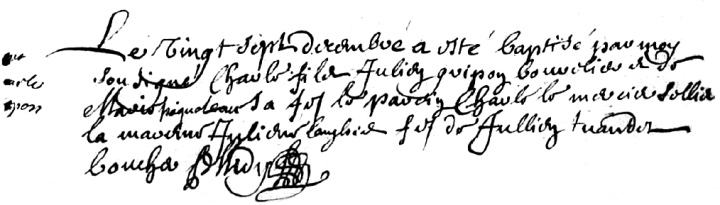 Le vingt sept decembre a esté baptisé par moy
soubsigné Charle fils Julien guipon bourelier et de
Marie piqueteau sa fe le parrin Charle le mercier sellier
la maraine Juliene fe de Jullien
boucher